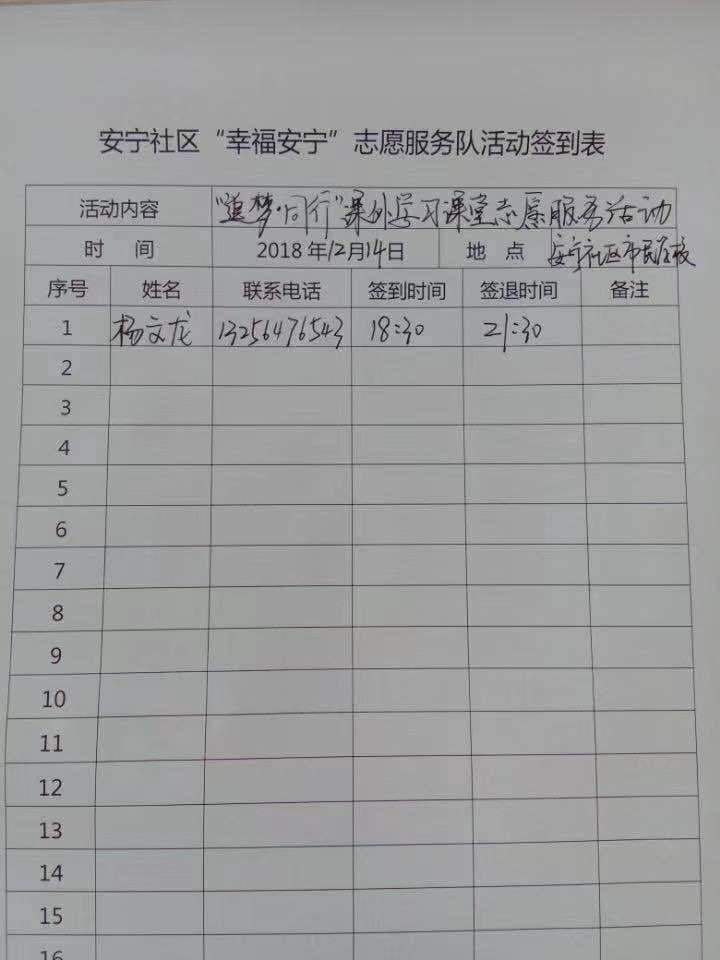 安宁社区“幸福安宁”志愿服务队活动签到表
活动内容 “追梦·同行”课外学习课堂志愿服务活动
时 间 2018年12月14日 地 点 安宁社区市民学校
序号 姓名 联系电话 签到时间 签退时间 备注
1 杨文龙 13256476543 18:30 21:30
2
3
4
5
6
7
8
9
10
11
12
13
14
15
16